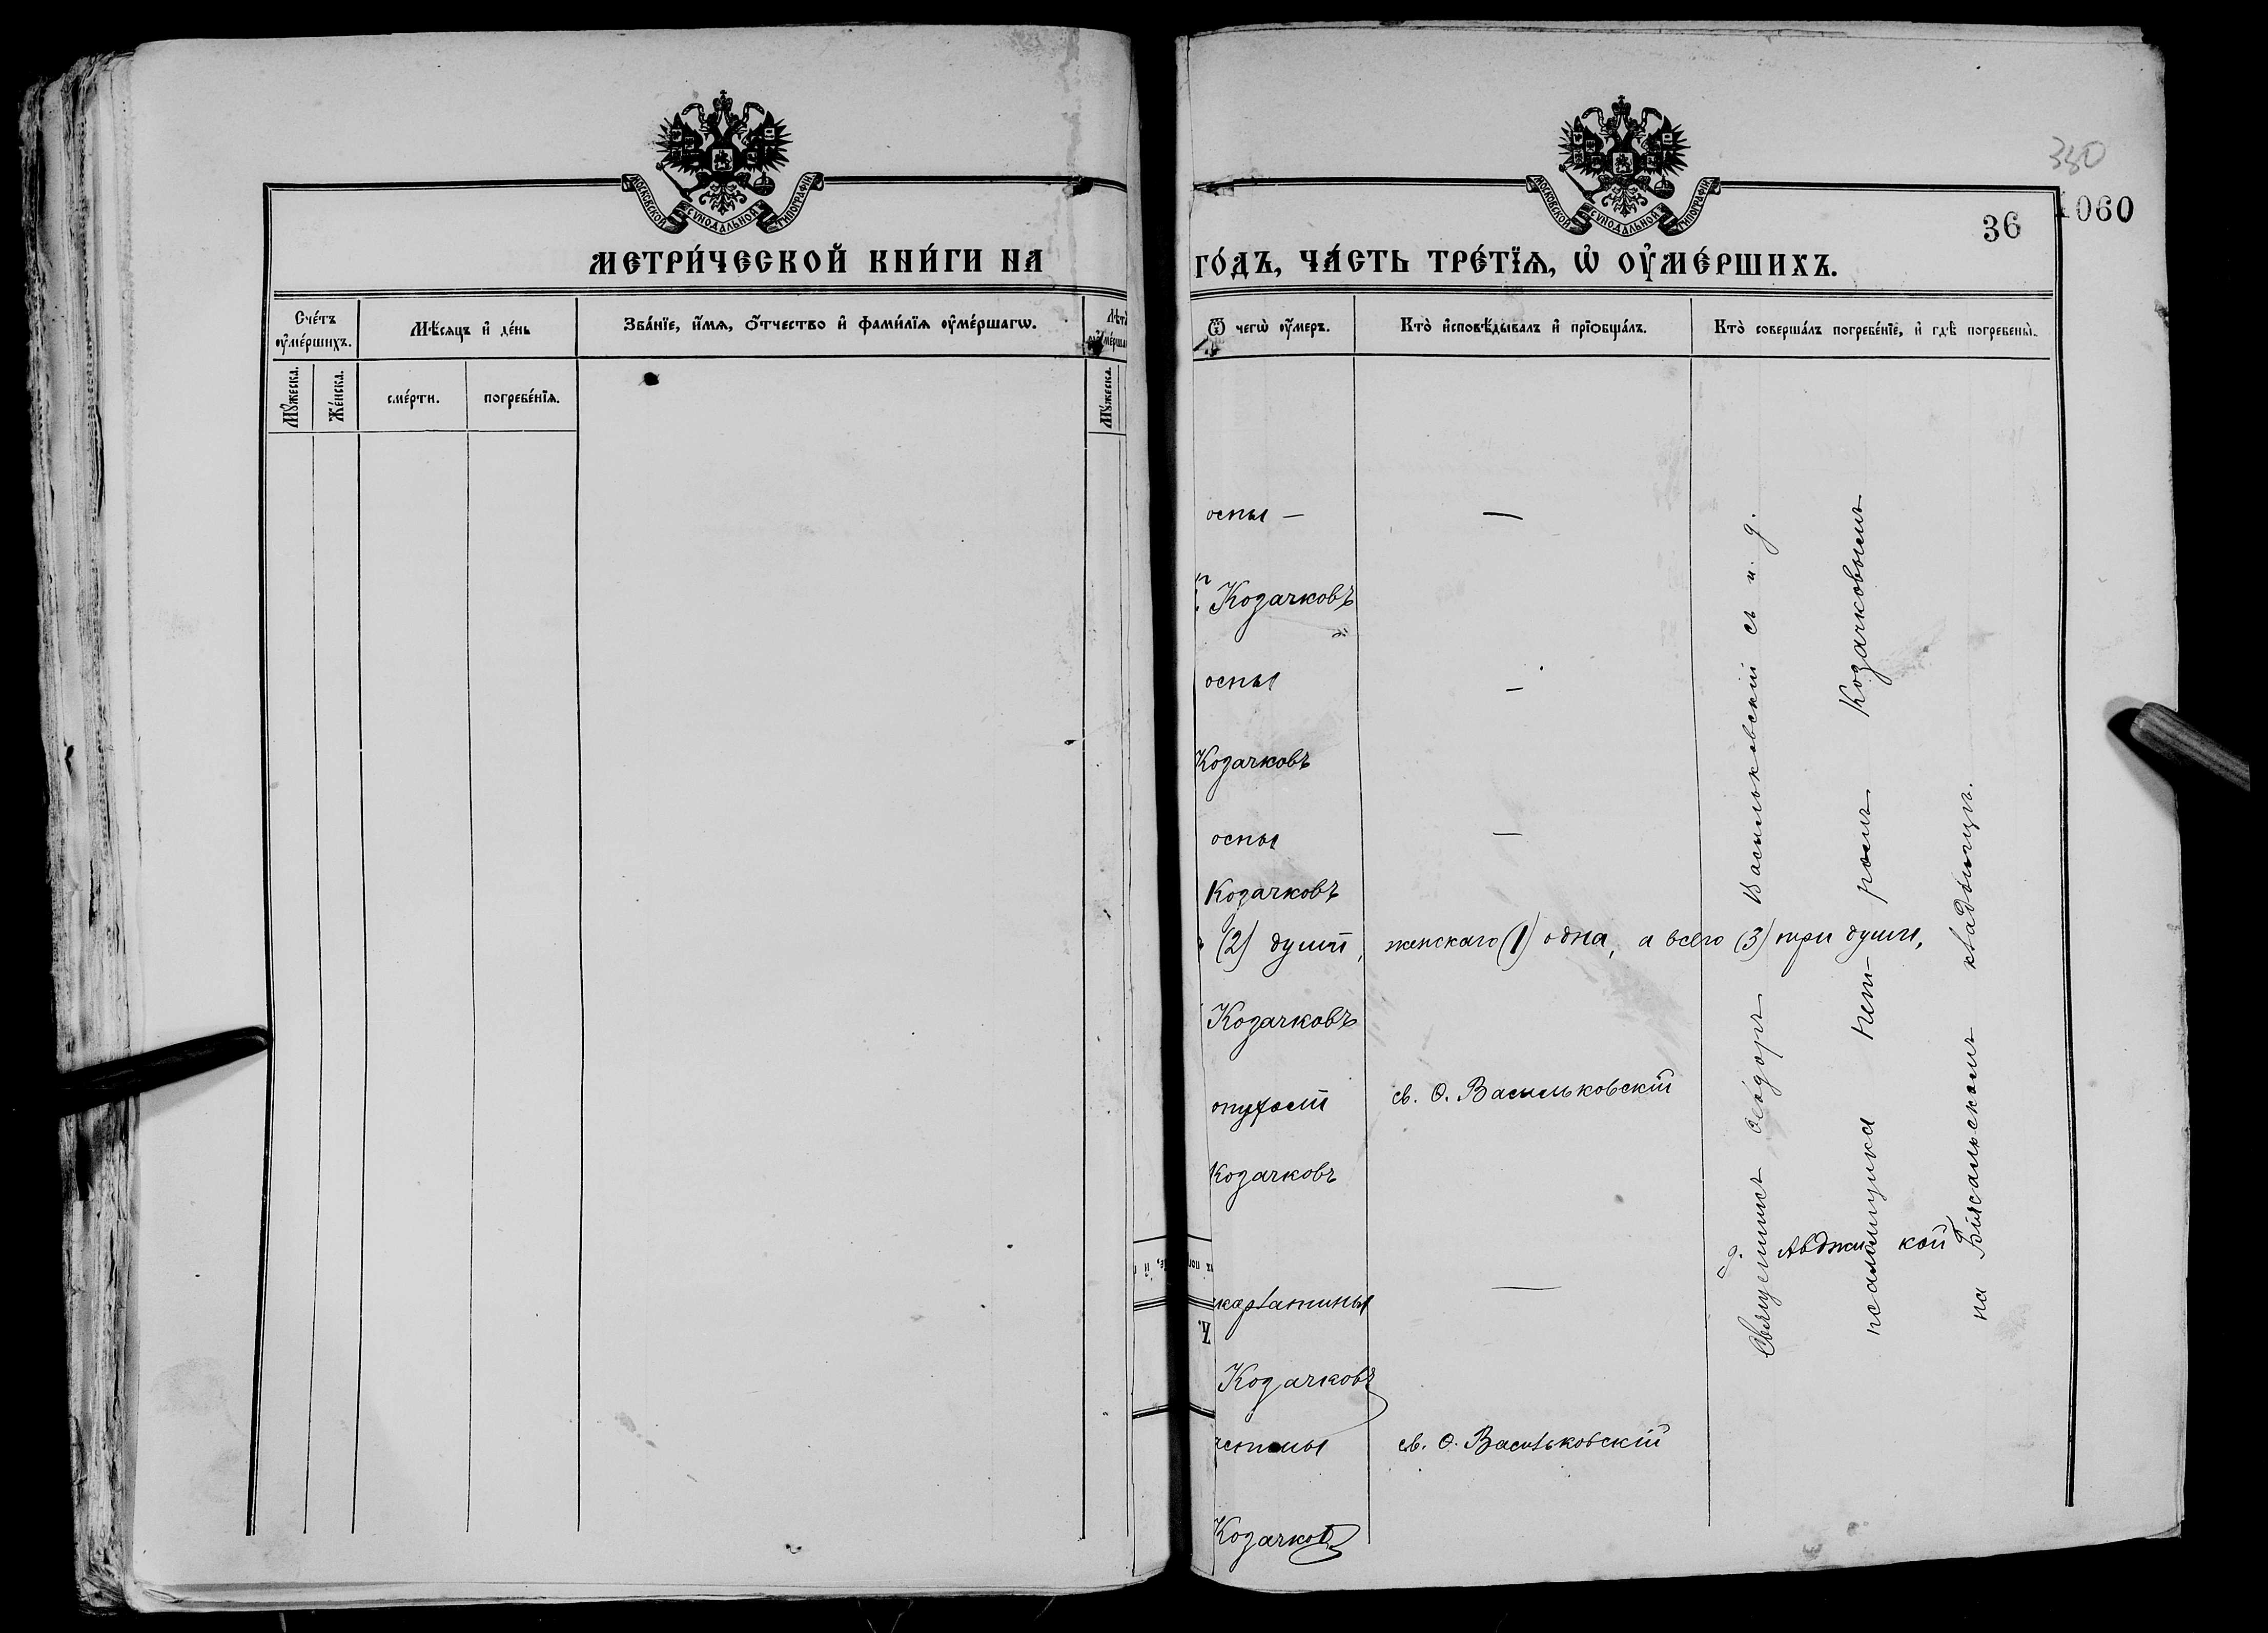 МОСКОВСКОЙ СѴНОДАЛЬНОЙ ТИПОГРАФІИ
МЕТРИ́ЧЕСКОЙ КНИ́ГИ НА
Сче́тъ ᲂу҆ме́ршихъ.
Мѣ́сяцъ и҆ де́нь
Зва́нїе, и҆́мѧ, ѻ҆́тчество и҆ фами́лїѧ ᲂу҆ме́ршагѡ.
Мꙋ́жеска.
Же́нска.
сме́рти.
погребе́нїѧ.
Мꙋ́жеска.
380
1060
36
МОСКОВСКОЙ СѴНОДАЛЬНОЙ ТИПОГРАФІИ
ГО́ДЪ, ЧА́СТЬ ТРЕ́ТЇѦ, Ѡ҆ ОУ҆МЕ́РШИХЪ.
Ѿ чегѡ̀ ᲂу҆́меръ.
Кто̀ и҆сповѣ́дывалъ и҆ прїѡбща́лъ.
Кто̀ соверша́лъ погребе́нїе, и҆ гдѣ̀ погребены̀.
оспы — —
Козачковъ
оспы —
Козачковъ
оспы —
Козачковъ
(2) души, женскаго (1) одна, а всего (3) три души,
Козачковъ
опухоли св. Ѳ. Васильковскій
Козачковъ
скарлатины —
Козачковъ
св. Ѳ. Васильковскій
Козачковъ
Священникъ Ѳеодоръ Васильковскій съ и. д.
псаломщика Петромъ Козачковымъ
на Біясальскомъ кладбищѣ.